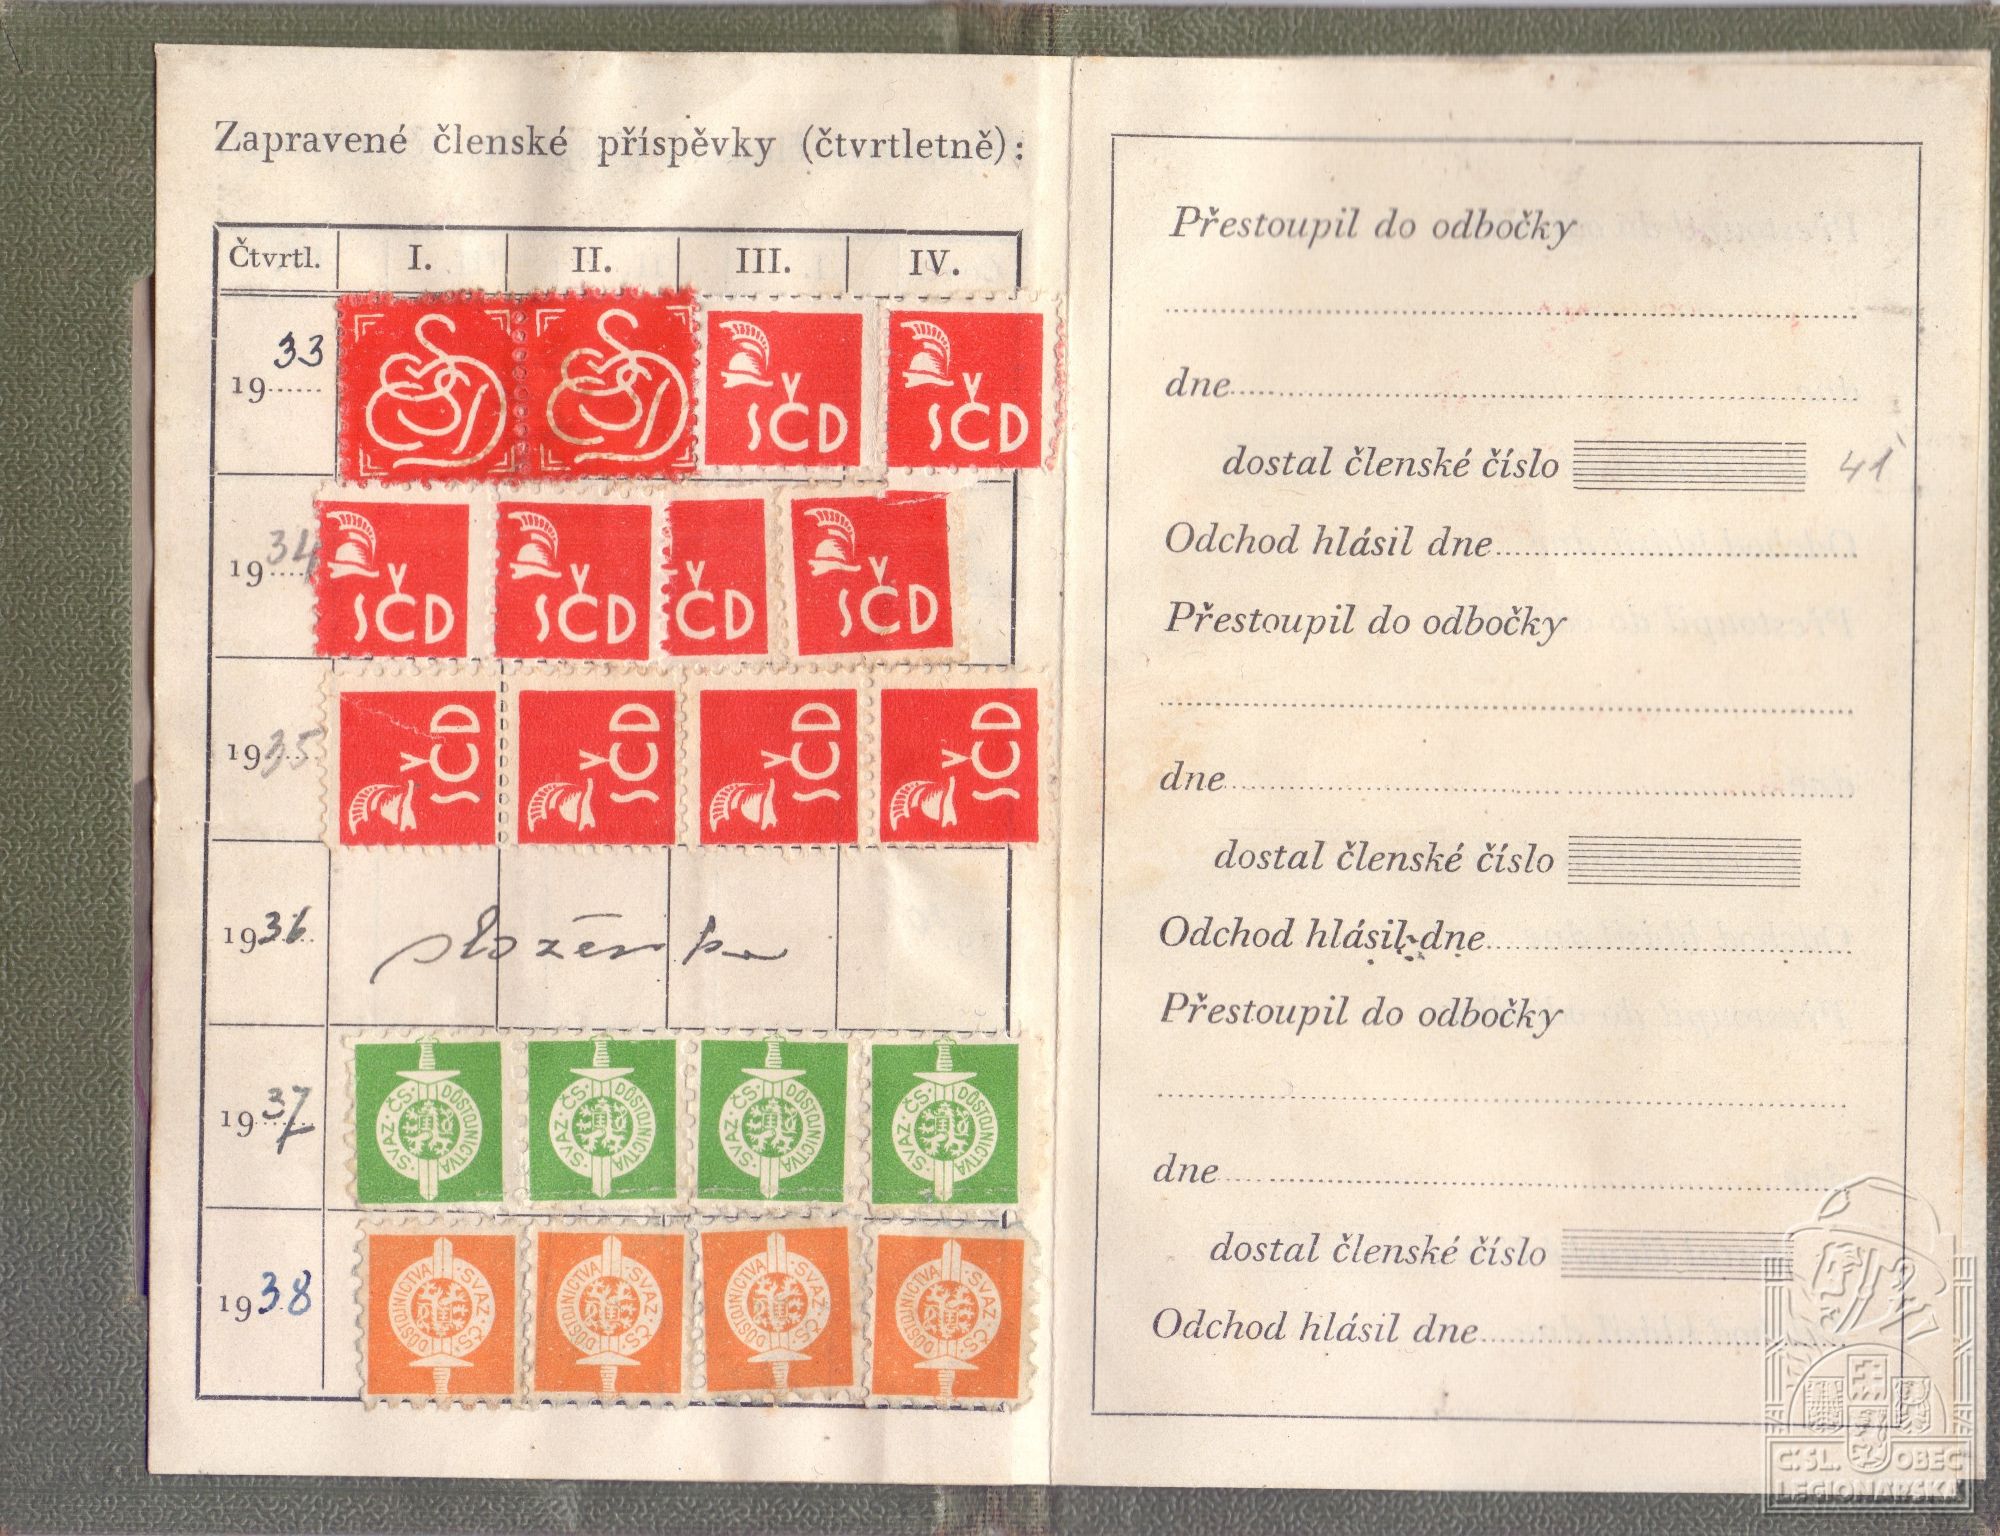 Zapravené členské příspěvky (čtvrtletně):
Čtvrtl. I. II. III. IV.
1933
SČD SČD
1934
SČD SČD ČD SČD
1935
SČD SČD SČD SČD
1936
1937
SVAZ · ČS · DŮSTOJNICTVA SVAZ · ČS · DŮSTOJNICTVA SVAZ · ČS · DŮSTOJNICTVA SVAZ · ČS · DŮSTOJNICTVA
1938
SVAZ · ČS · DŮSTOJNICTVA SVAZ · ČS · DŮSTOJNICTVA SVAZ · ČS · DŮSTOJNICTVA SVAZ · ČS · DŮSTOJNICTVA
Přestoupil do odbočky
dne
dostal členské číslo 41
Odchod hlásil dne
Přestoupil do odbočky
dne
dostal členské číslo
Odchod hlásil dne
Přestoupil do odbočky
dne
dostal členské číslo
Odchod hlásil dne
Č.SL. OBEC
LEGIONÁŘSKÁ